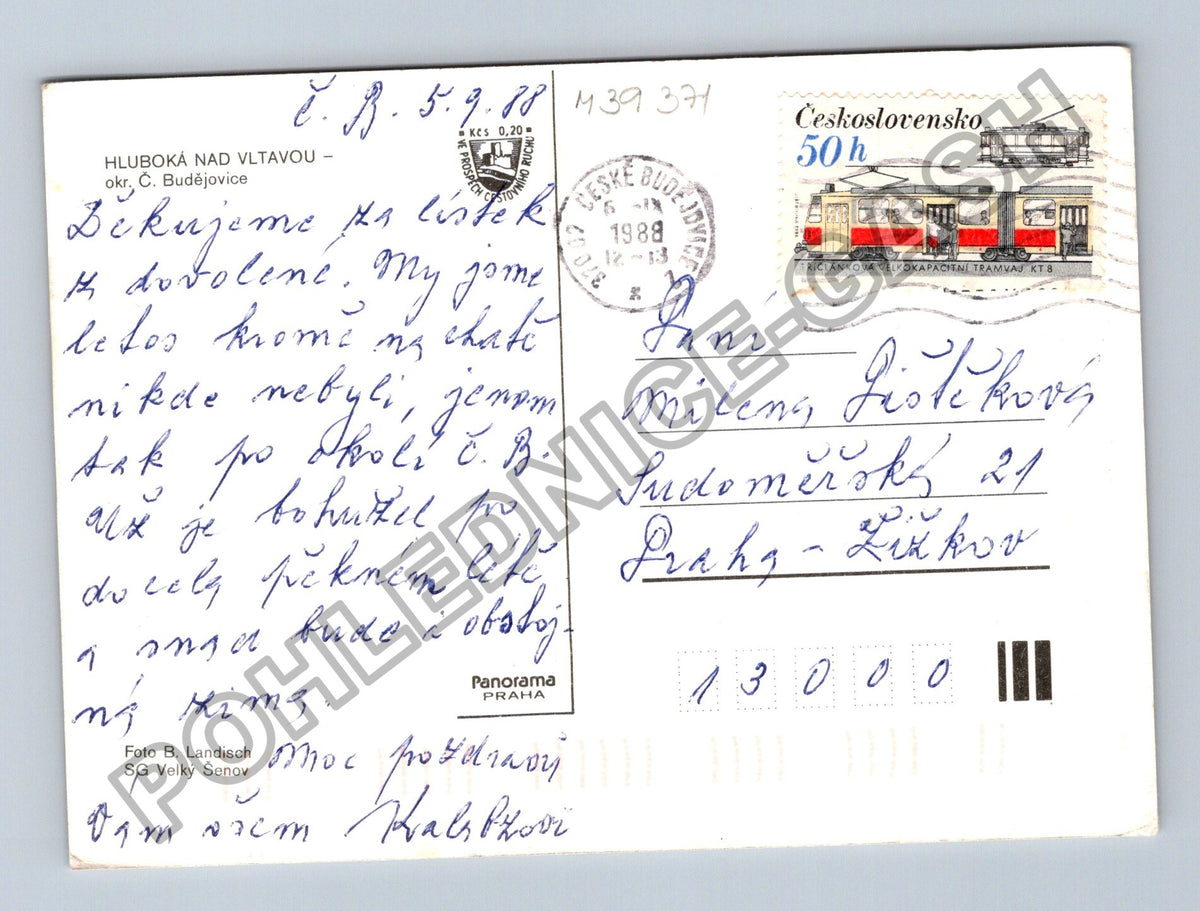 Č. B. 5.9.88
HLUBOKÁ NAD VLTAVOU –
okr. Č. Budějovice
Kčs 0,20
VE PROSPĚCH CESTOVNÍHO RUCHU
Děkujeme za lístek
z dovolené. My jsme
letos kromě na chatě
nikde nebyli, jenom
tak po okolí Č. B.
Už je bohužel po
docela pěkném létě
a snad bude i obstoj-
ná zima.
Moc pozdravů
Vám všem
Foto B. Landisch
SG Velký Šenov
Panorama
PRAHA
M39 371
370 02 ČESKÉ BUDĚJOVICE 1
6.-IX
1988
12-13
z
Československo
50 h
TŘÍČLÁNKOVÁ VELKOKAPACITNÍ TRAMVAJ KT 8
Paní
Milena Pištěková
Sudoměřská 21
Praha - Žižkov
13000
POHLEDNICE-GASH